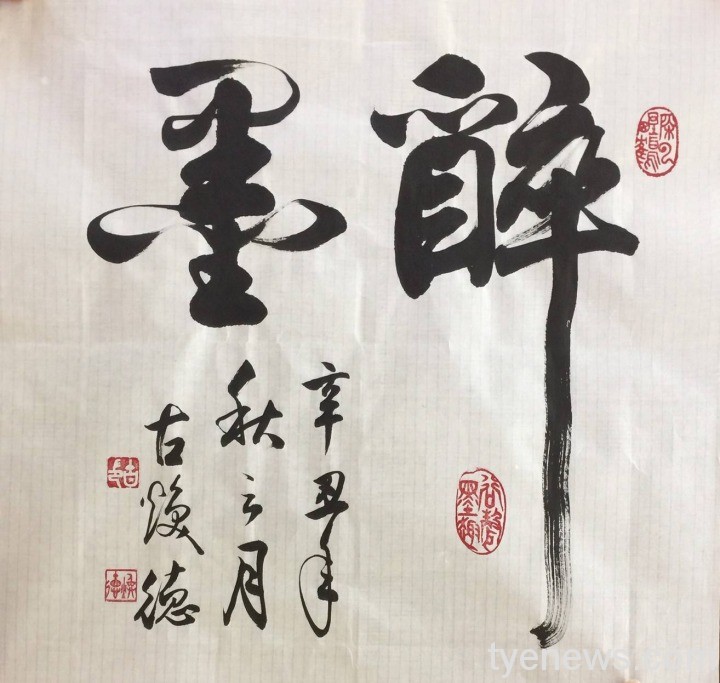 醉墨
辛丑年
秋之月
古煥德
tyenews.com